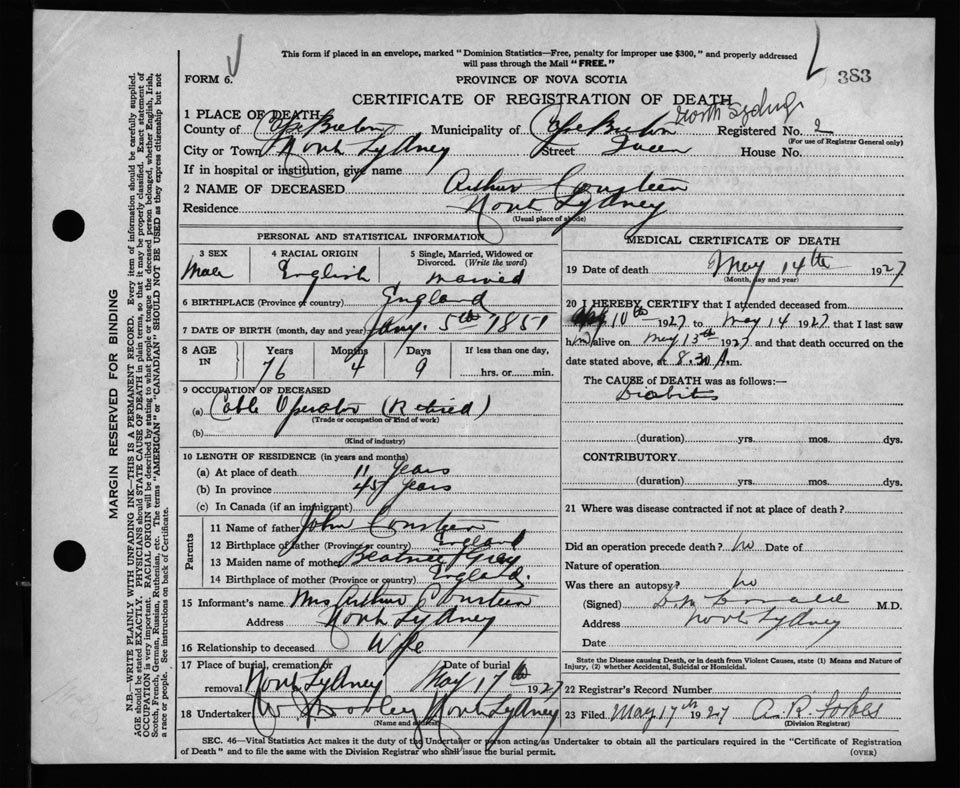 This form if placed in an envelope, marked "Dominion Statistics—Free, penalty for improper use $300," and properly addressed
will pass through the Mail "FREE."
FORM 6.
PROVINCE OF NOVA SCOTIA
383
CERTIFICATE OF REGISTRATION OF DEATH
North Sydney
1 PLACE OF DEATH
County of Cape Breton Municipality of Cape Breton Registered No. 2
(For use of Registrar General only)
City or Town North Sydney Street Queen House No.
If in hospital or institution, give name
2 NAME OF DECEASED Arthur
Residence North Sydney
(Usual place of abode)
PERSONAL AND STATISTICAL INFORMATION
3 SEX Male
4 RACIAL ORIGIN English
5 Single, Married, Widowed or
Divorced. (Write the word)
Married
6 BIRTHPLACE (Province or country) England
7 DATE OF BIRTH (month, day and year) Jany. 5th 1851
8 AGE IN Years Months Days If less than one day,
76 4 9 hrs. or min.
9 OCCUPATION OF DECEASED
(a) Cable Operator (Retired)
(Trade or occupation or kind of work)
(b)
(Kind of industry)
10 LENGTH OF RESIDENCE (in years and months)
(a) At place of death 11 years
(b) In province 45 years
(c) In Canada (if an immigrant)
Parents
11 Name of father John
12 Birthplace of father (Province or country) England
13 Maiden name of mother Beatrice Gray
14 Birthplace of mother (Province or country) England.
15 Informant's name Mrs Arthur
Address North Sydney
16 Relationship to deceased Wife
17 Place of burial, cremation or Date of burial
removal North Sydney May 17th 1927
18 Undertaker North Sydney
(Name and address)
MEDICAL CERTIFICATE OF DEATH
19 Date of death May 14th 1927
(Month, day and year)
20 I HEREBY CERTIFY that I attended deceased from
10th 1927 to May 14 1927 that I last saw
him alive on May 13th 1927 and that death occurred on the
date stated above, at 8.30 A.m.
The CAUSE of DEATH was as follows:—
Diabetes
(duration) yrs. mos. dys.
CONTRIBUTORY
(duration) yrs. mos. dys.
21 Where was disease contracted if not at place of death?
Did an operation precede death? no Date of
Nature of operation
Was there an autopsy? no
(Signed) M.D.
Address North Sydney
Date
State the Disease causing Death, or in death from Violent Causes, state (1) Means and Nature of
Injury, (2) whether Accidental, Suicidal or Homicidal.
22 Registrar's Record Number
23 Filed May 17th 1927 A. R. Forbes
(Division Registrar)
SEC. 46—Vital Statistics Act makes it the duty of the Undertaker or person acting as Undertaker to obtain all the particulars required in the "Certificate of Registration
of Death" and to file the same with the Division Registrar who shall issue the burial permit. (OVER)
MARGIN RESERVED FOR BINDING
N.B.—WRITE PLAINLY WITH UNFADING INK—THIS IS A PERMANENT RECORD. Every item of information should be carefully supplied.
AGE should be stated EXACTLY. PHYSICIANS should STATE CAUSE OF DEATH in plain terms, so that it may be properly classified. Exact statement of
OCCUPATION is very important. RACIAL ORIGIN will be described by stating to what people or tongue the deceased person belonged, whether English, Irish,
Scotch, French, German, Russian, Ruthenian, etc. The terms "AMERICAN" or "CANADIAN" SHOULD NOT BE USED as they express citizenship but not
a race or people. See instructions on back of Certificate.